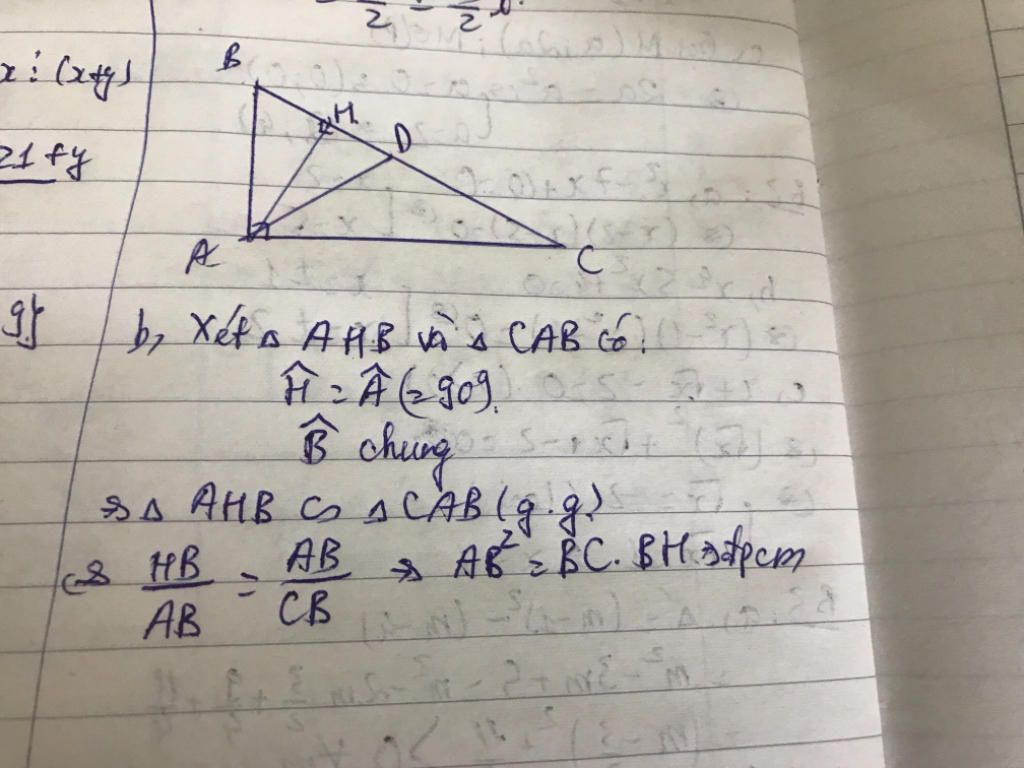 x ⋮ (x+y)
21 + y
B
H
D
A
C
b, Xét △ AHB và △ CAB có:
Ĥ = Â (= 90º).
B̂ chung
⇒ △ AHB ∽ △ CAB (g.g)
⇔ HB/AB = AB/CB ⇒ AB² = BC. BH ⇒ đpcm